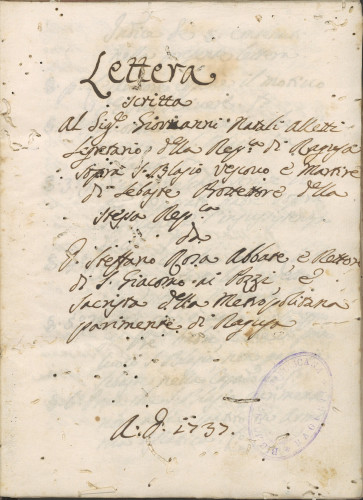 Lettera
scritta
Al Sigr. Giovanni Natali Aletti
Segretario della Repca. di Ragusa
sopra S. Blasio Vescovo e Martire
di Sebaste Protettore della
stessa Repca
da
D. Steffano Rosa Abbate e Rettore
di S. Giacomo ai Pozzi, e
Sacrista della Metropolitana
parimente di Ragusa
A. D. 1737.